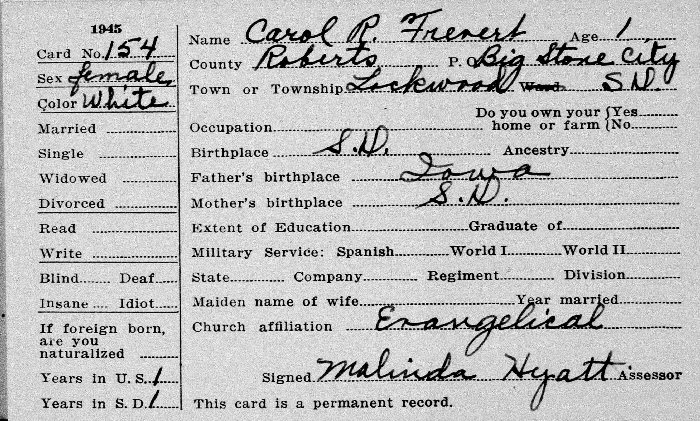 1945
Card No. 154
Sex female
Color White
Married
Single
Widowed
Divorced
Read
Write
Blind Deaf
Insane Idiot
If foreign born,
are you
naturalized
Years in U. S. 1
Years in S. D. 1
Name Carol R. Frevert Age 1
County Roberts P. O. Big Stone City
Town or Township Lockwood Ward S.D.
Do you own your {Yes
Occupation home or farm {No
Birthplace S.D. Ancestry
Father's birthplace Iowa
Mother's birthplace S.D.
Extent of Education Graduate of
Military Service: Spanish World I World II
State Company Regiment Division
Maiden name of wife Year married
Church affiliation Evangelical
Signed Malinda Hyatt Assessor
This card is a permanent record.